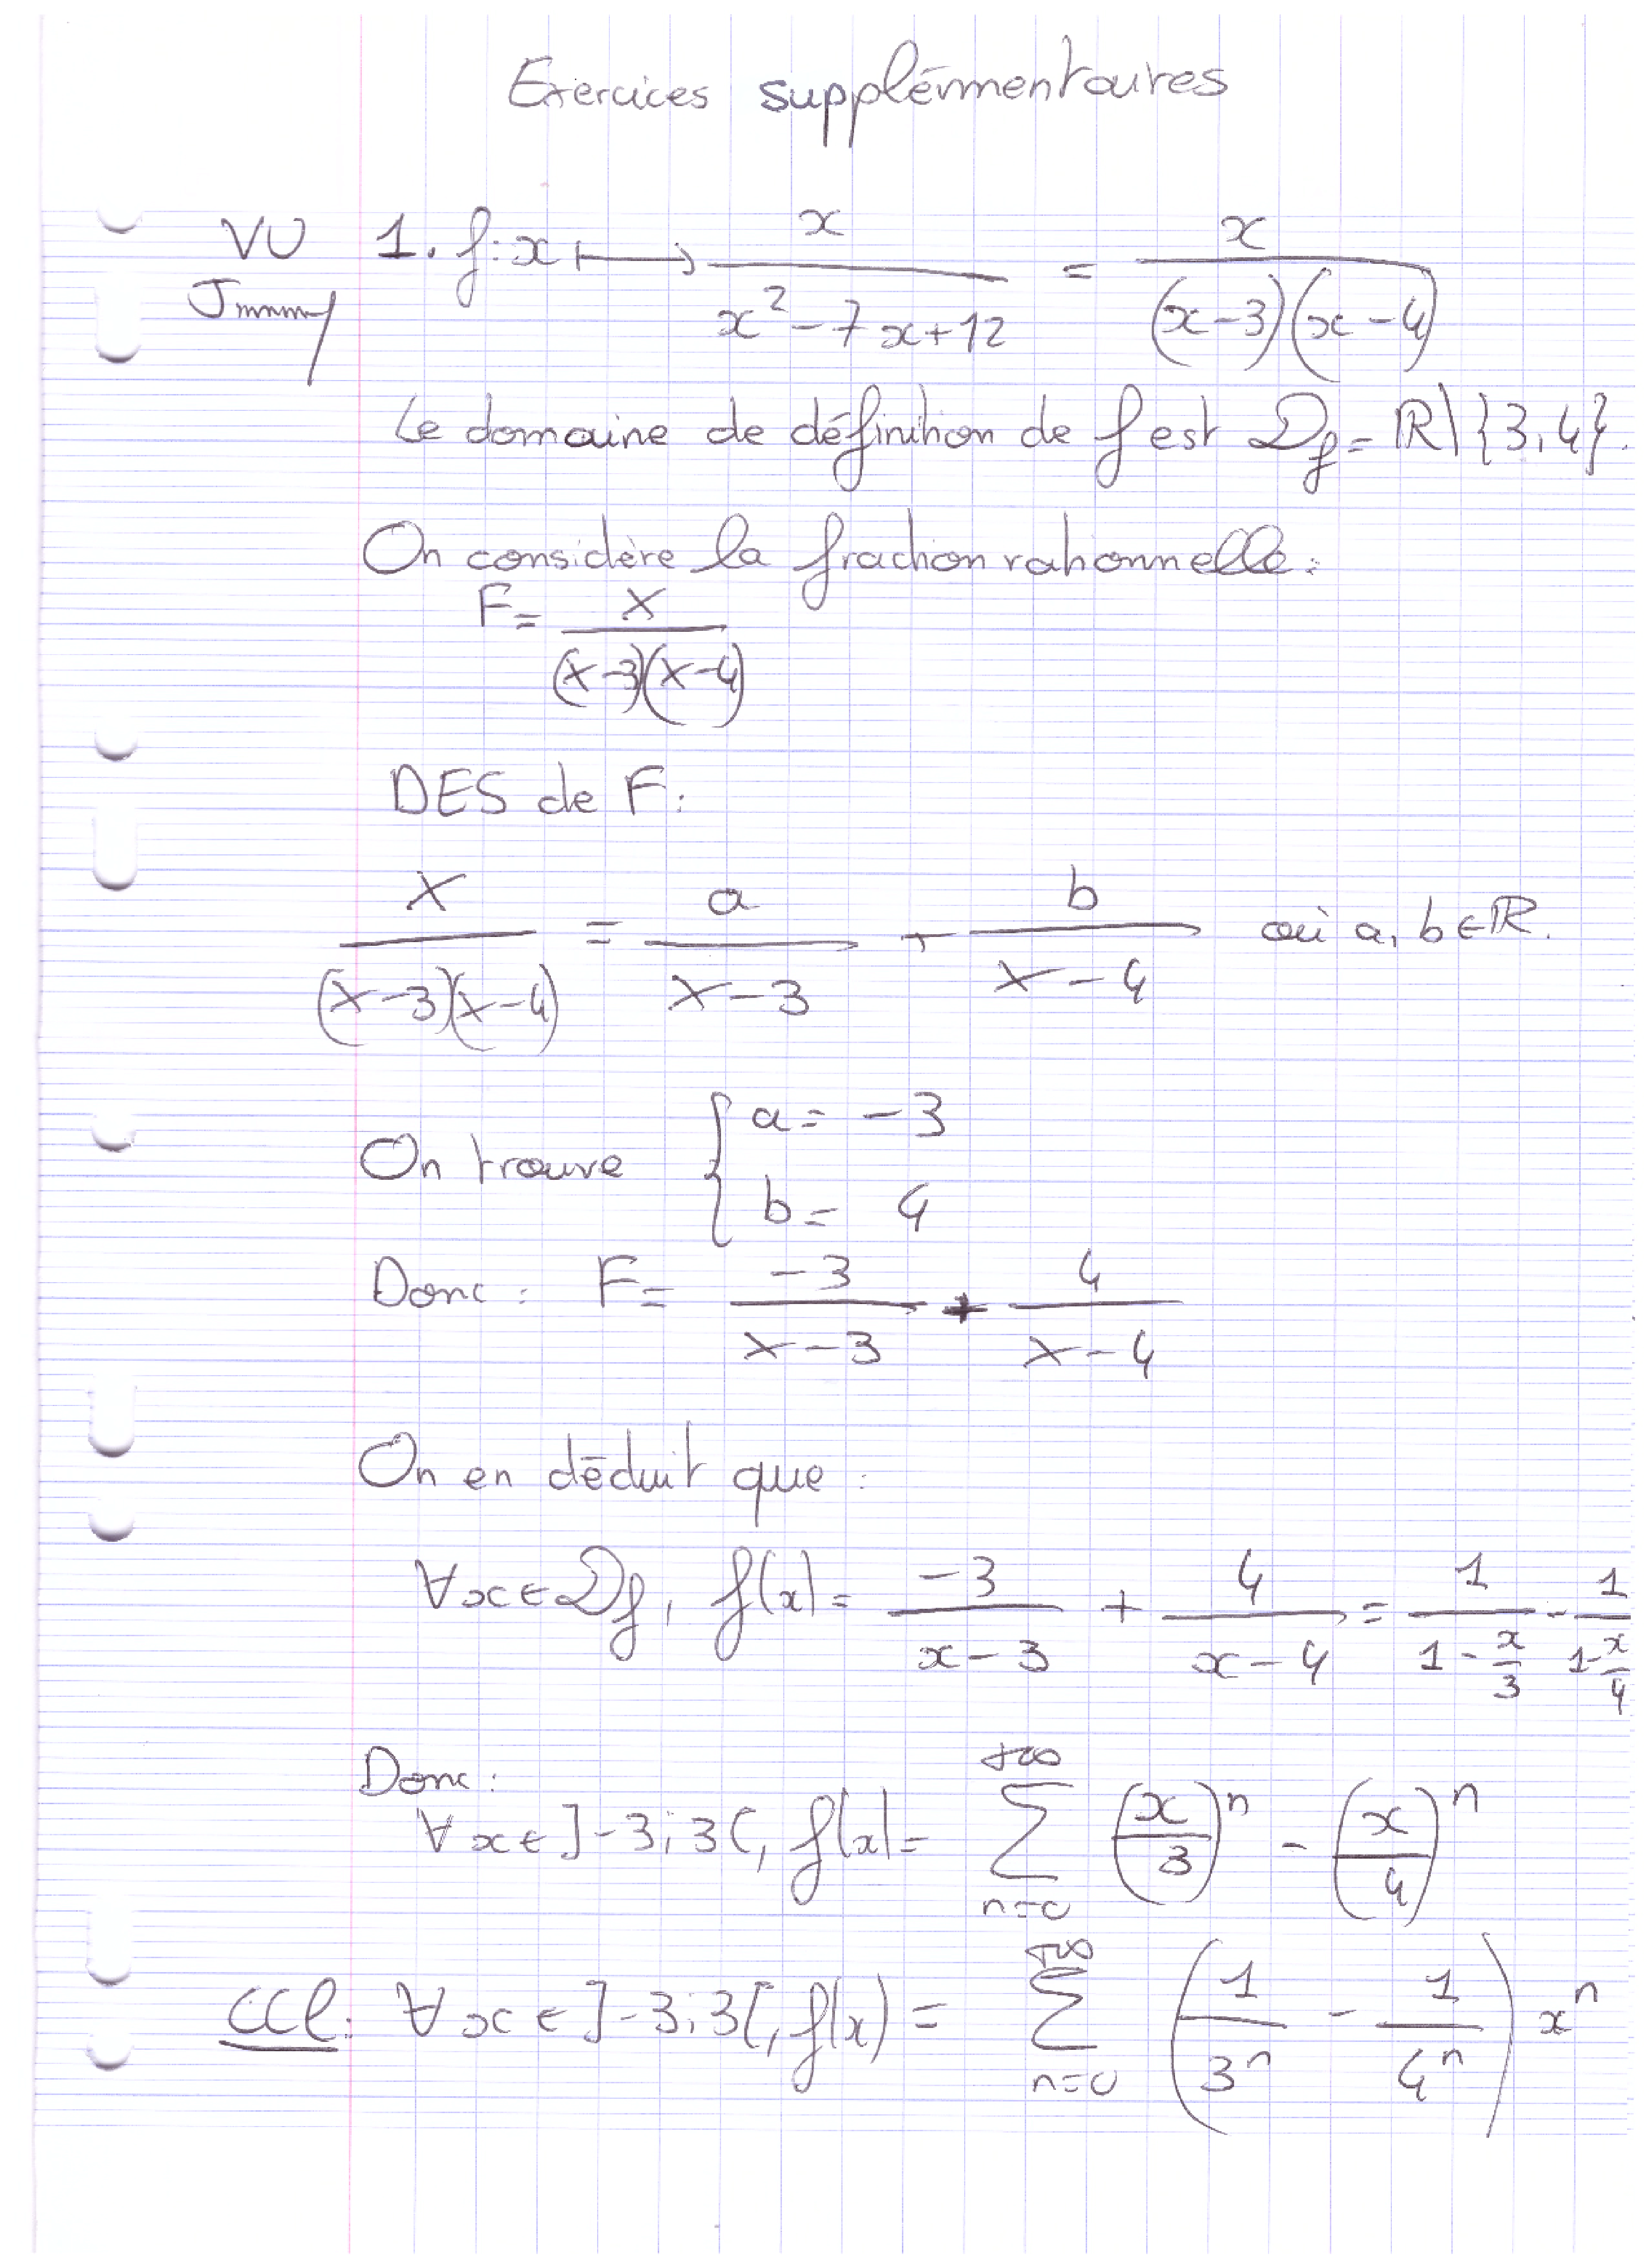 Exercices supplémentaires
VU 1. f: x ⟼ x/(x² - 7x + 12) = x/((x-3)(x-4))
Le domaine de définition de f est 𝒟f = ℝ\{3,4}.
On considère la fraction rationnelle :
F = X/((X-3)(X-4))
DES de F :
X/((X-3)(X-4)) = a/(X-3) + b/(X-4) où a, b ∈ ℝ.
On trouve { a = -3
b = 4
Donc : F = -3/(X-3) + 4/(X-4)
On en déduit que :
∀x ∈ 𝒟f, f(x) = -3/(x-3) + 4/(x-4) = 1/(1 - x/3) - 1/(1 - x/4)
Donc :
∀x ∈ ]-3;3[, f(x) = ∑_{n=0}^{+∞} (x/3)^n - (x/4)^n
CCl : ∀x ∈ ]-3;3[, f(x) = ∑_{n=0}^{+∞} (1/3^n - 1/4^n) x^n